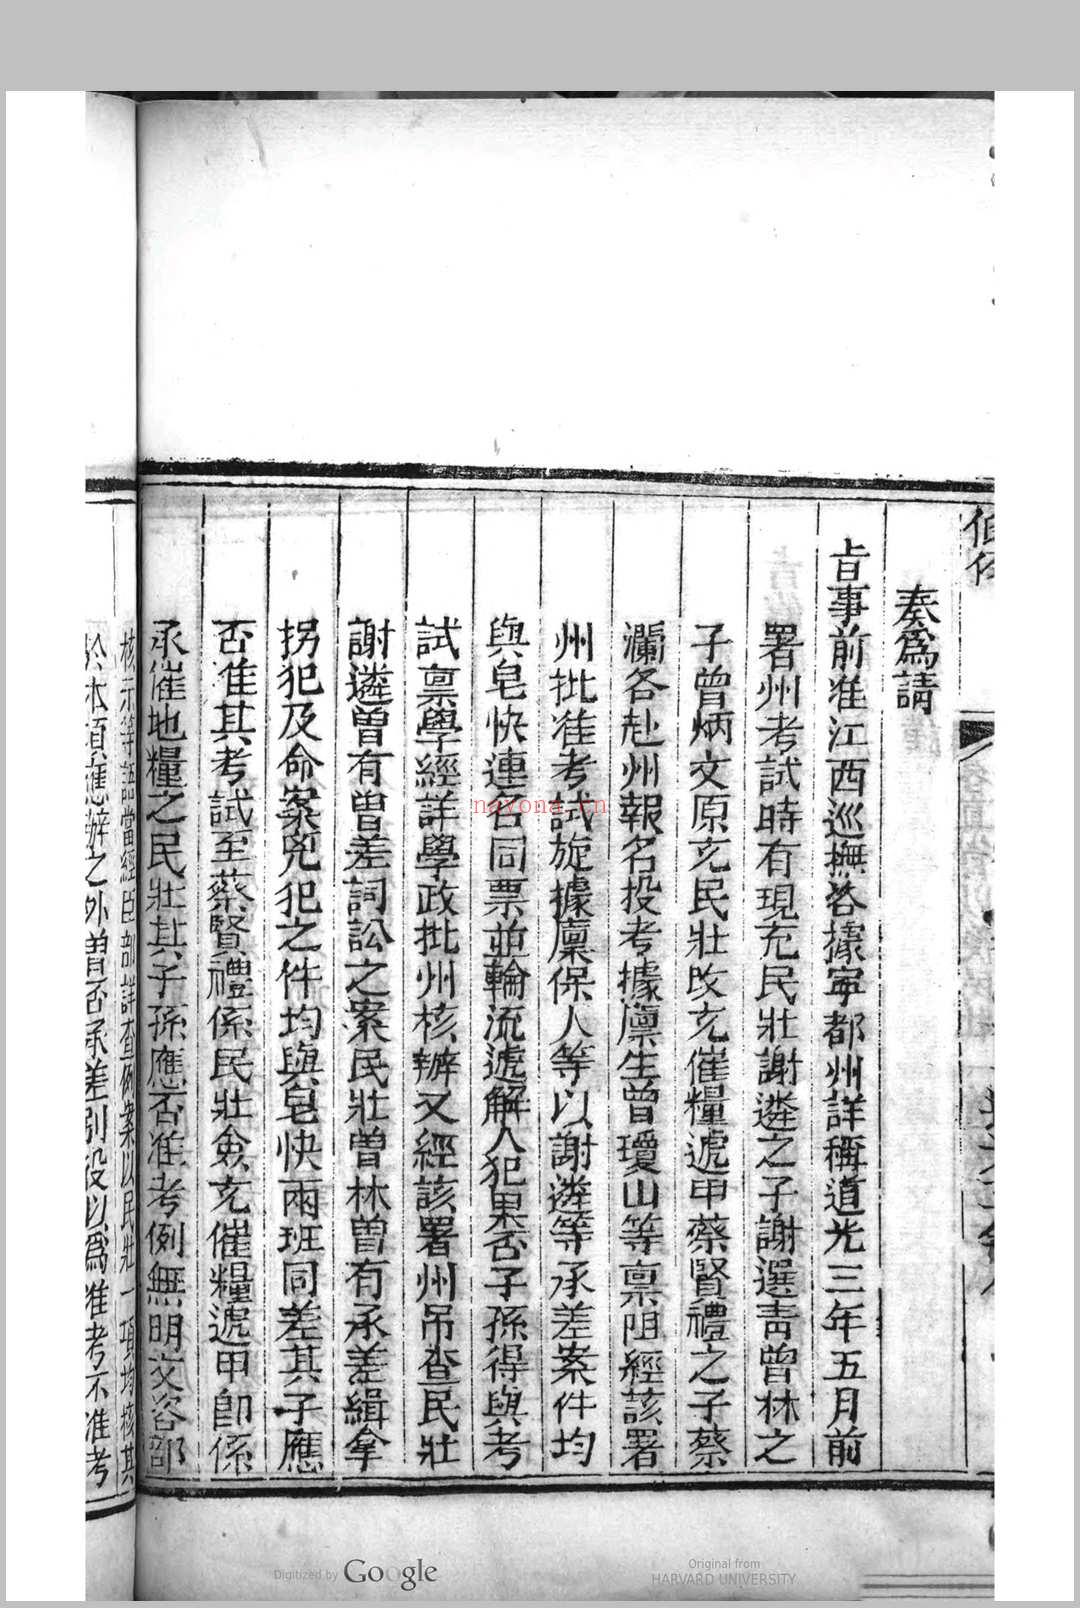 奏爲請
旨事前准江西巡撫咨據寧都州詳稱道光三年五月前
署州考試時有現充民壯謝遴之子謝選青曾林之
子曾炳文原充民壯改充催糧遞甲蔡賢禮之子蔡
瀾各赴州報名投考據廩生曾瓊山等稟阻經該署
州批准考試旋據廩保人等以謝遴等承差案件均
與皂快連名同票並輪流遞解人犯果否子孫得與考
試稟學經詳學政批州核辦又經該署州吊查民壯
謝遴曾有曾差詞訟之案民壯曾林曾有承差緝拿
拐犯及命案兇犯之件均與皂快兩班同差其子應
否准其考試至蔡賢禮係民壯僉充催糧遞甲卽係
承催地糧之民壯其子孫應否准考例無明文咨部
核示等語當經臣部詳查例案以民壯一項均核其
於本項應辦之外曾否承差別役以爲准考不准考
nayona.cn
Digitized by Google
Original from
HARVARD UNIVERSITY